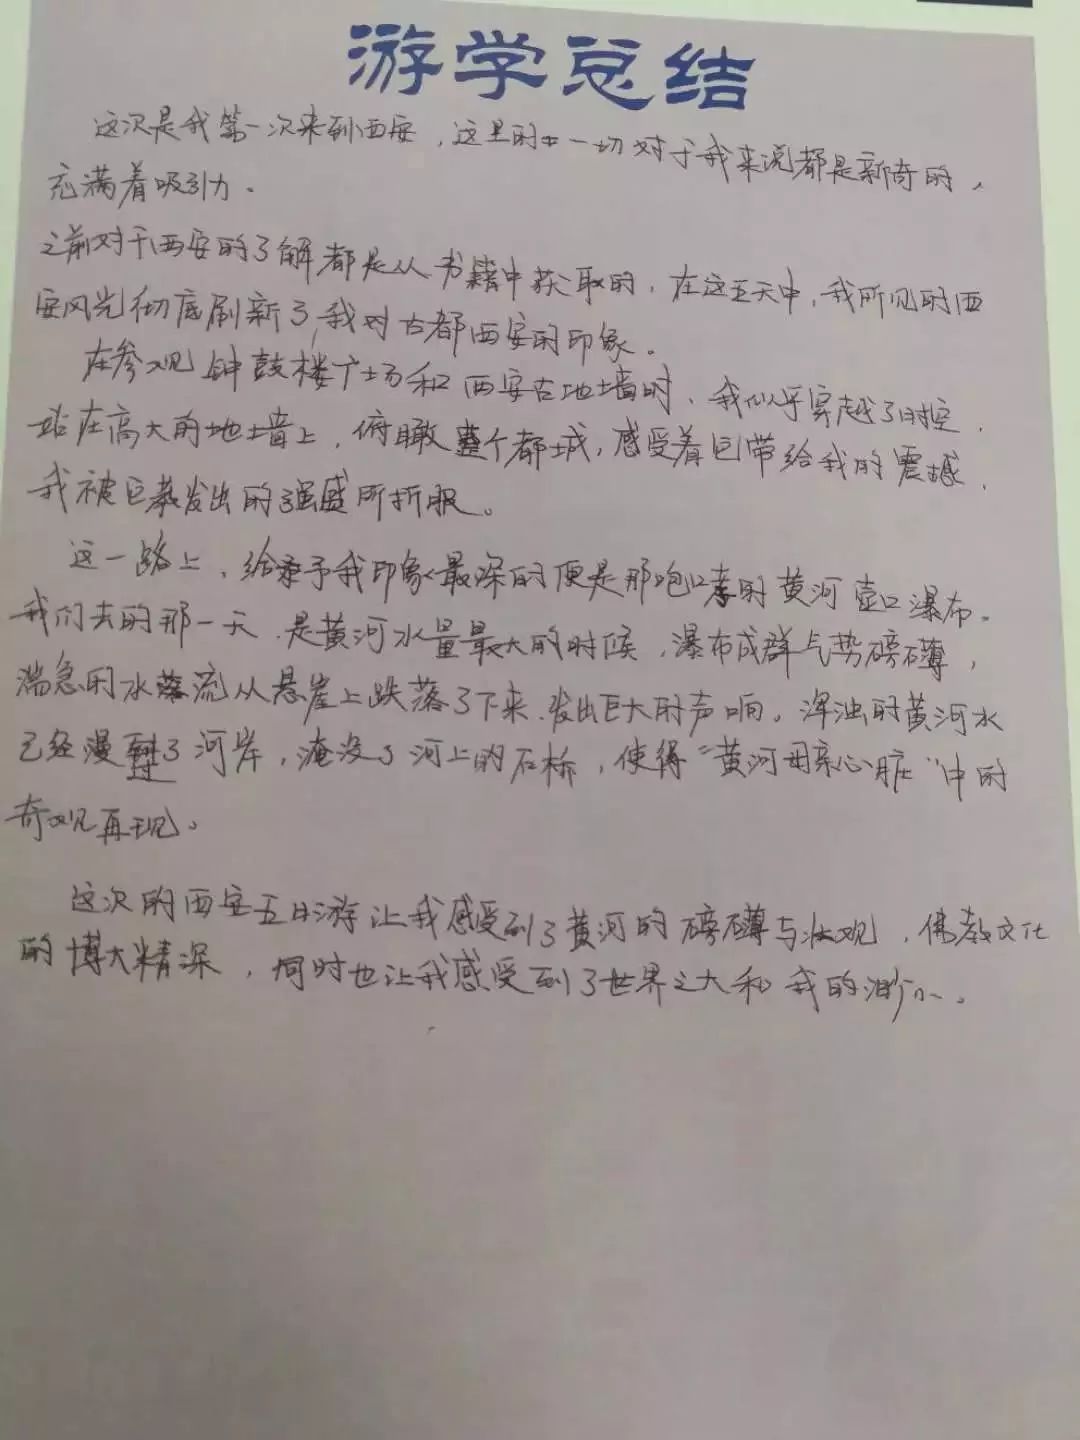 游学总结
这次是我第一次来到西安，这里的一切对于我来说都是新奇的，
充满着吸引力。
之前对于西安的了解都是从书籍中获取的，在这五天中，我所见的西
安风光彻底刷新了我对古都西安的印象。
在参观钟鼓楼广场和西安古地墙时，我似乎穿越了时空，
站在高大的地墙上，俯瞰整个都城，感受着它带给我的震撼，
我被它散发出的强盛所折服。
这一路上，给予我印象最深的便是那咆哮的黄河壶口瀑布。
我们去的那一天，是黄河水量最大的时候，瀑布成群气势磅礴，
湍急的水流从悬崖上跌落了下来，发出巨大的声响。浑浊的黄河水
已经漫过了河岸，淹没了河上的石桥，使得“黄河母亲心脏”中的
奇观再现。
这次的西安五日游让我感受到了黄河的磅礴与壮观，佛教文化
的博大精深，同时也让我感受到了世界之大和我的渺小。